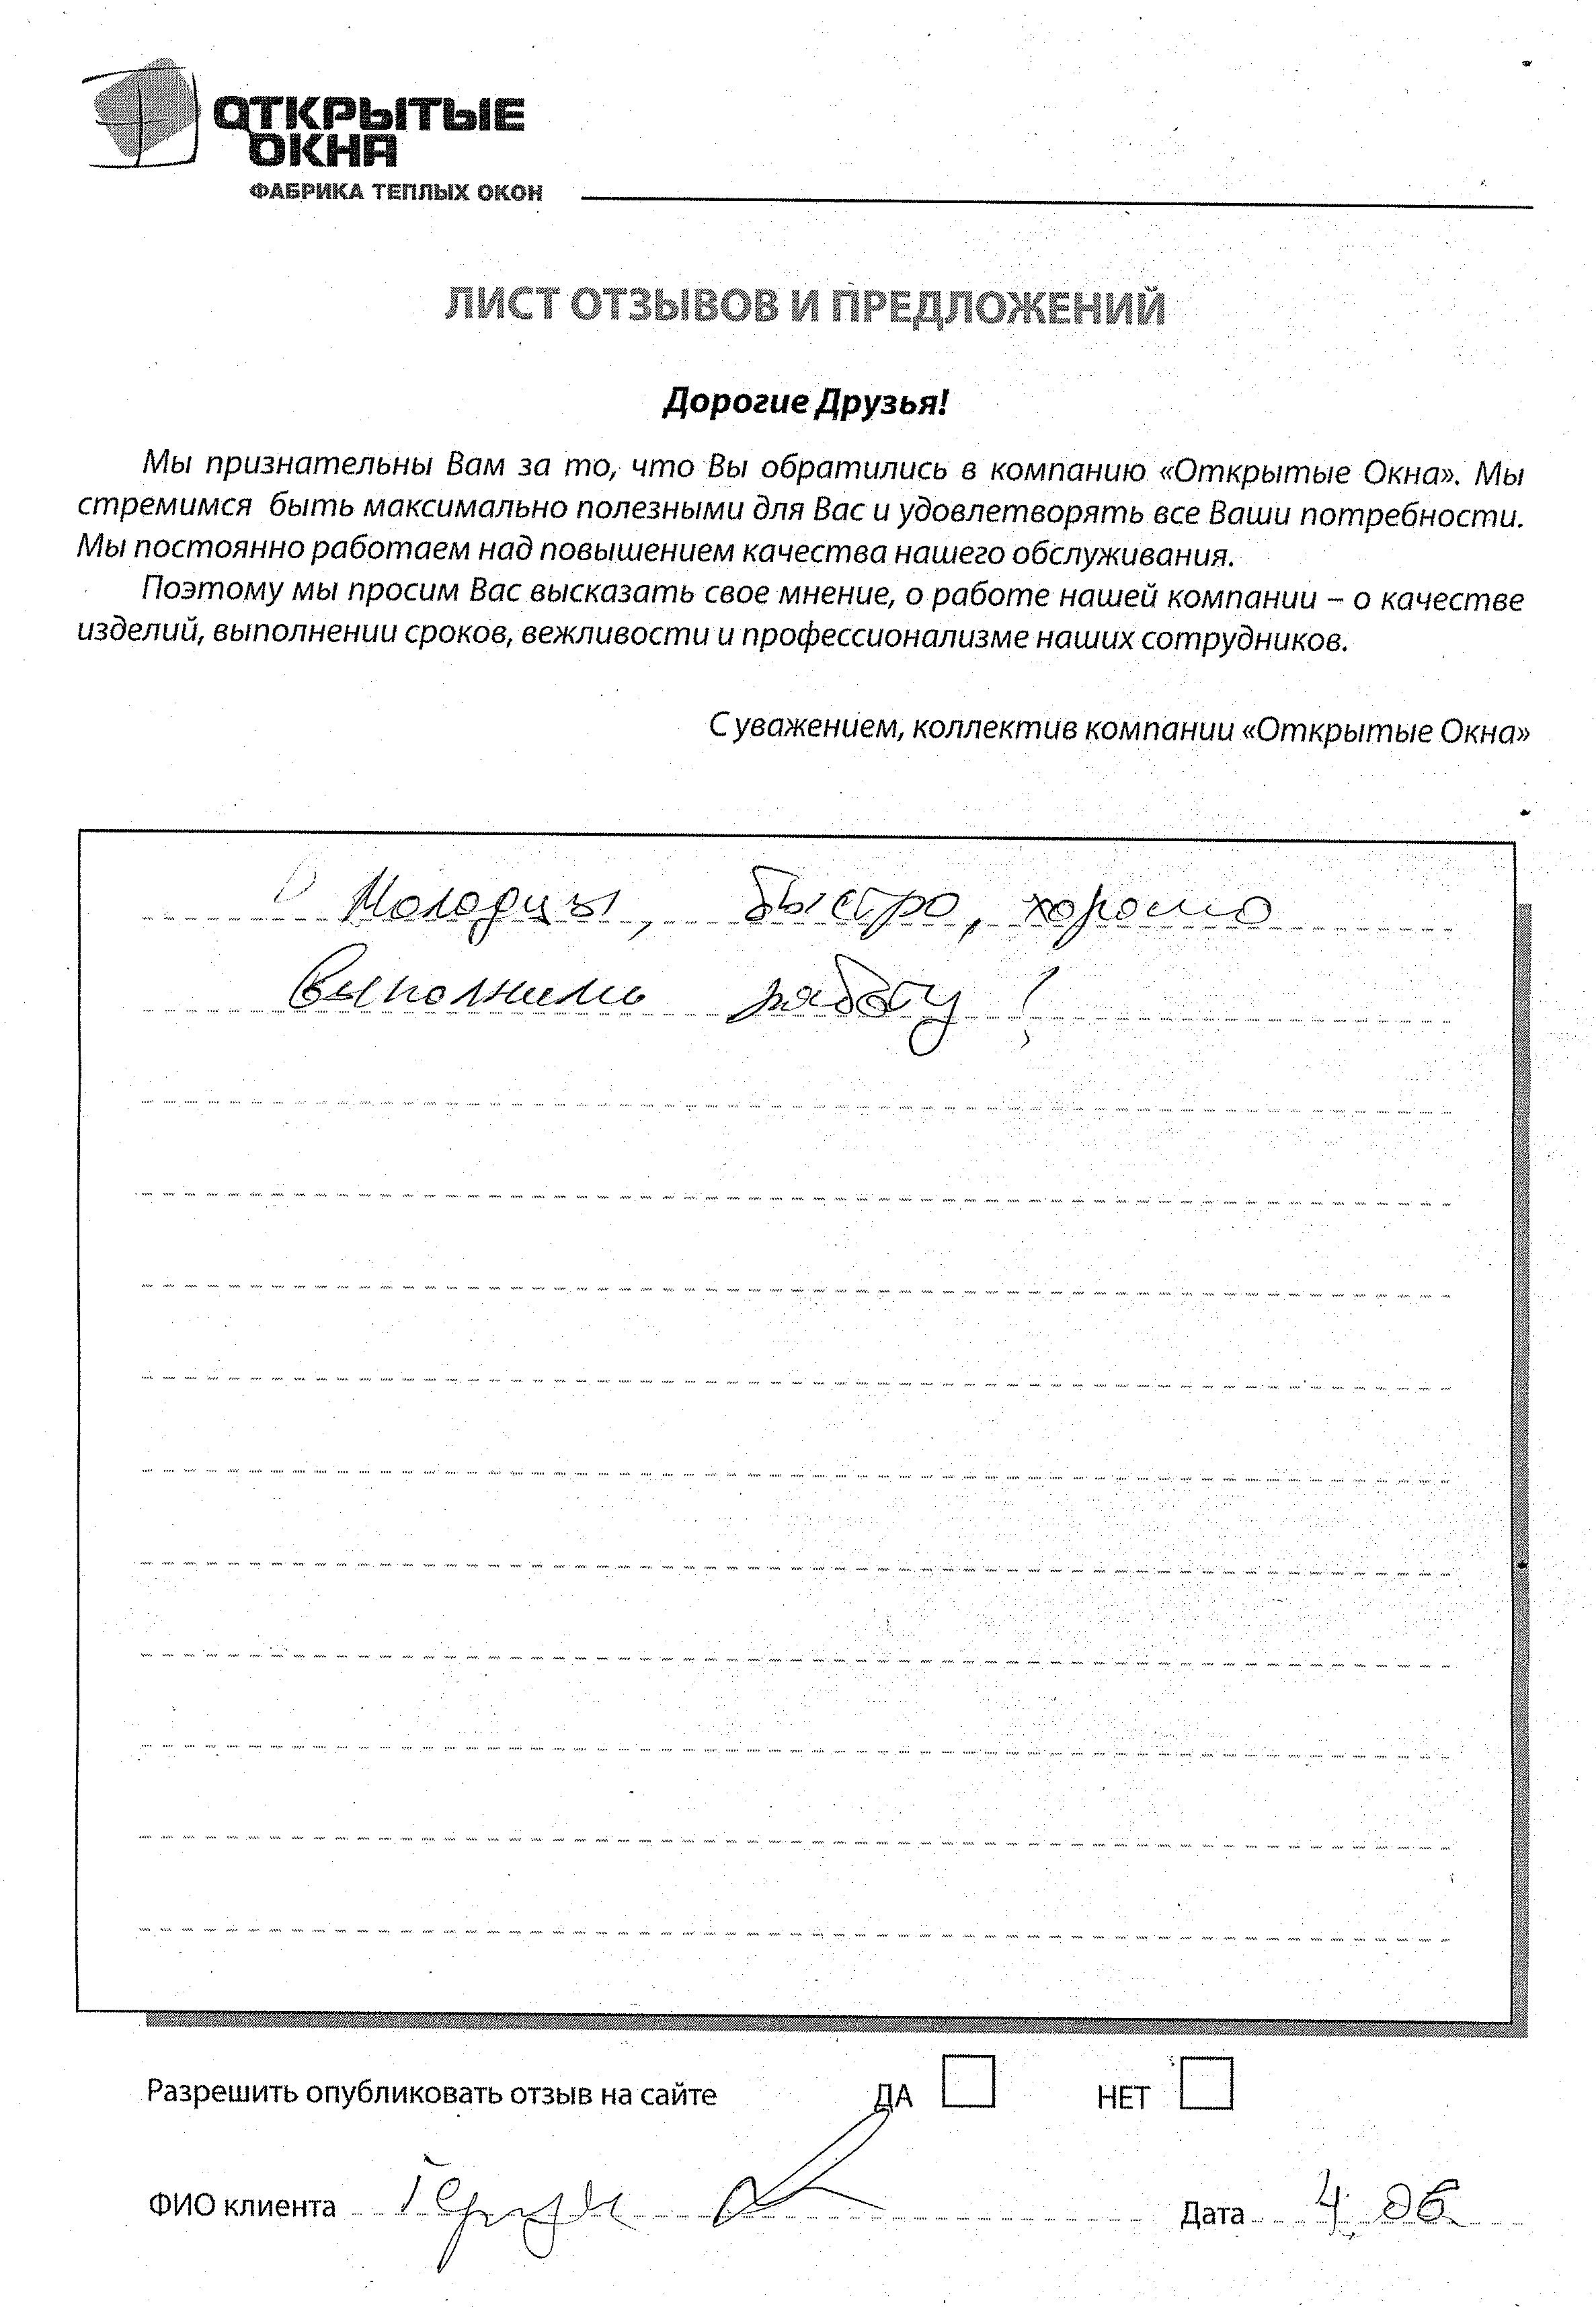 ОТКРЫТЫЕ
ОКНА
ФАБРИКА ТЕПЛЫХ ОКОН
ЛИСТ ОТЗЫВОВ И ПРЕДЛОЖЕНИЙ
Дорогие Друзья!
Мы признательны Вам за то, что Вы обратились в компанию «Открытые Окна». Мы
стремимся быть максимально полезными для Вас и удовлетворять все Ваши потребности.
Мы постоянно работаем над повышением качества нашего обслуживания.
Поэтому мы просим Вас высказать свое мнение, о работе нашей компании – о качестве
изделий, выполнении сроков, вежливости и профессионализме наших сотрудников.
С уважением, коллектив компании «Открытые Окна»
Молодцы, быстро, хорошо
выполнили работу!
Разрешить опубликовать отзыв на сайте ДА НЕТ
ФИО клиента Дата 4.06